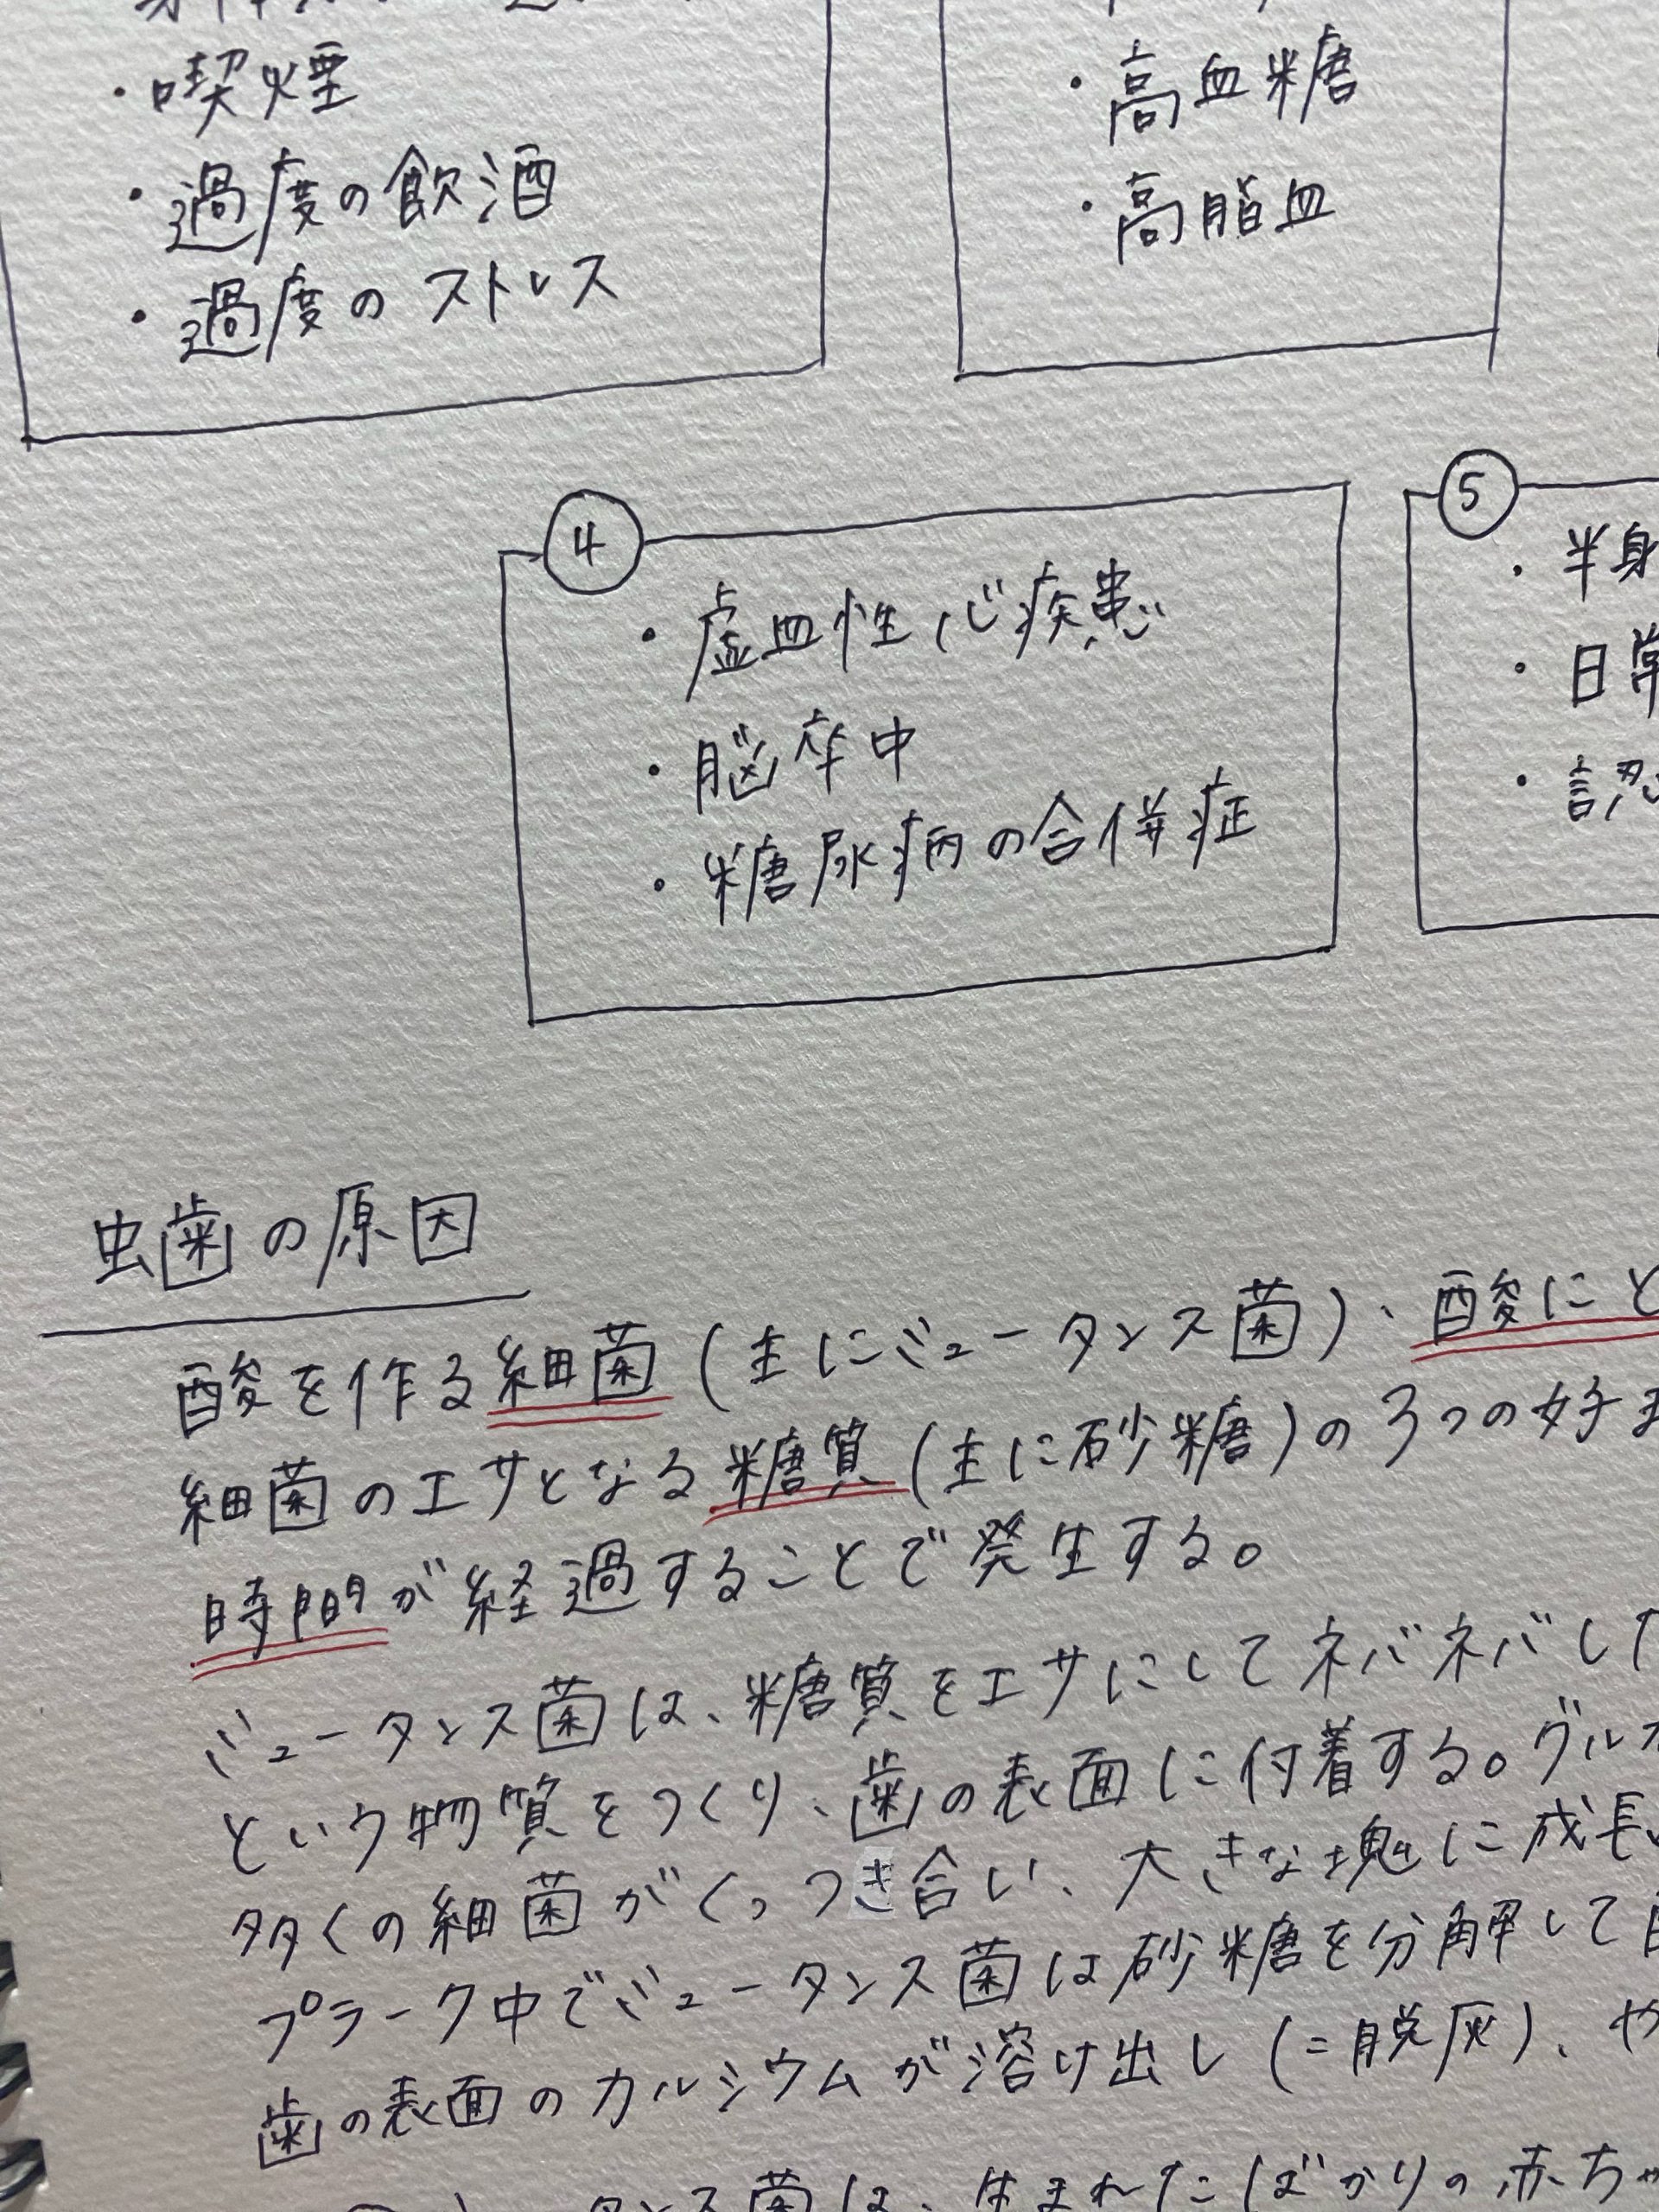 ・喫煙
・過度の飲酒
・過度のストレス
・高血糖
・高脂血
④
・虚血性心疾患
・脳卒中
・糖尿病の合併症
⑤
・半身
・日常
・認
虫歯の原因
酸を作る細菌(主にミュータンス菌)、酸にと
細菌のエサとなる糖質(主に砂糖)の3つの好ま
時間が経過することで発生する。
ミュータンス菌は、糖質をエサにしてネバネバした
という物質をつくり、歯の表面に付着する。グルカ
多くの細菌がくっつき合い、大きな塊に成長
プラーク中でミュータンス菌は砂糖を分解して
歯の表面のカルシウムが溶け出し(=脱灰)、や
ータンス菌は、生まれたばかりの赤ちゃ